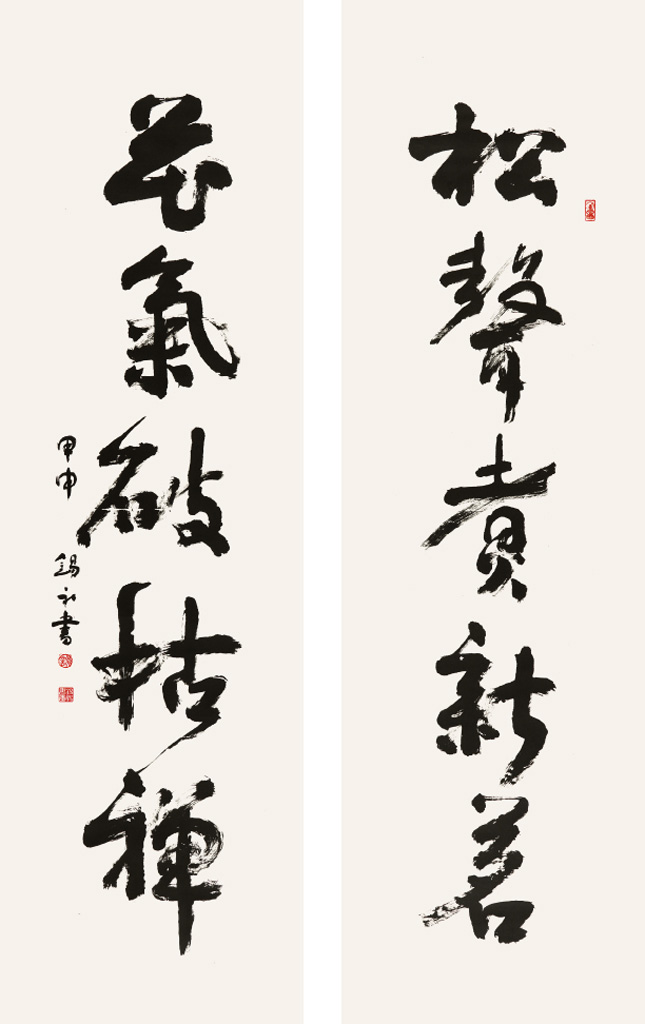 松聲煮新茗
花氣破枯禪
甲申 錫 書